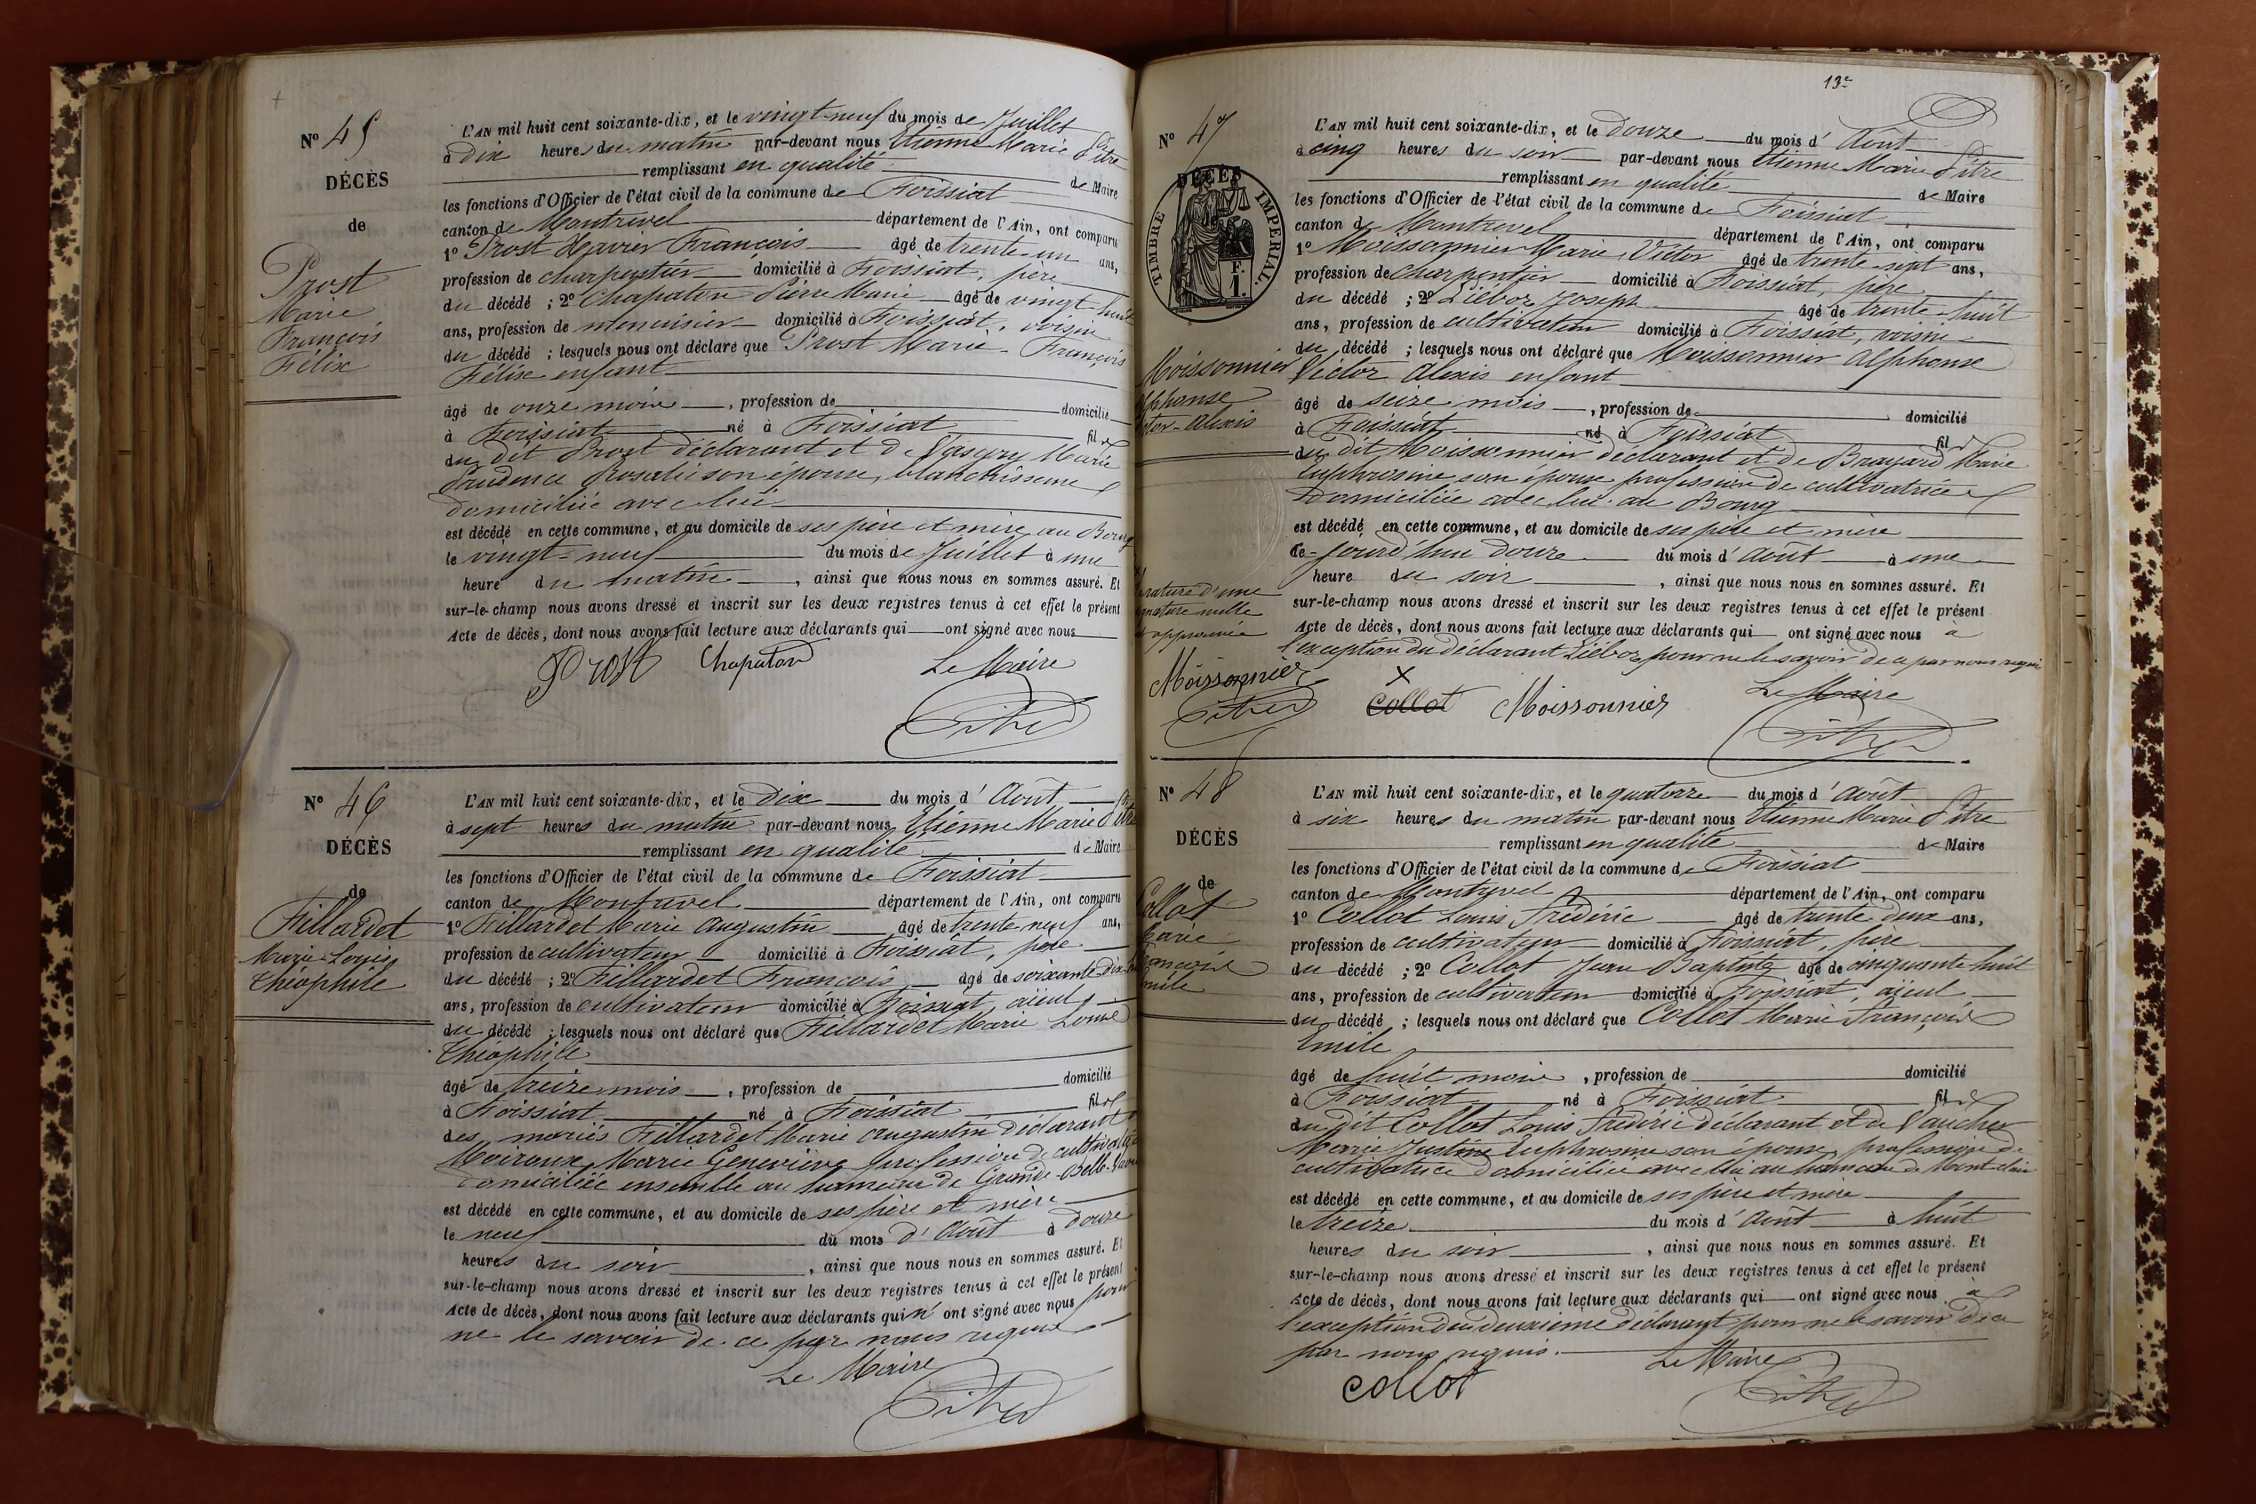 Nº 45
DÉCÈS
de
Prost
Marie
François
Félix
L'AN mil huit cent soixante-dix, et le vingt-neuf du mois de Juillet
à dix heures du matin par-devant nous Etienne Marie Pitre
remplissant en qualité de Maire
les fonctions d'Officier de l'état civil de la commune de Foissiat
canton de Montrevel département de l'Ain, ont comparu
1º Prost Xavier François âgé de trente-un ans,
profession de charpentier domicilié à Foissiat, père
du décédé ; 2º Chapaton Pierre Marie âgé de vingt-huit
ans, profession de menuisier domicilié à Foissiat, voisin
du décédé ; lesquels nous ont déclaré que Prost Marie François
Félix enfant
âgé de onze mois, profession de domicilié
à Foissiat né à Foissiat fils
du dit Prost déclarant et de Marie
Prudence Rosalie son épouse, blanchisseuse
domiciliée avec lui
est décédé en cette commune, et au domicile de ses père et mère au Bourg
le vingt-neuf du mois de Juillet à une
heure du matin, ainsi que nous nous en sommes assuré. Et
sur-le-champ nous avons dressé et inscrit sur les deux registres tenus à cet effet le présent
Acte de décès, dont nous avons fait lecture aux déclarants qui ont signé avec nous
Prost Chapaton Le Maire
Pitre
Nº 46
DÉCÈS
de
Fillardet
Marie-Louis
Théophile
L'AN mil huit cent soixante-dix, et le dix du mois d'Août
à sept heures du matin par-devant nous Etienne Marie Pitre
remplissant en qualité de Maire
les fonctions d'Officier de l'état civil de la commune de Foissiat
canton de Montrevel département de l'Ain, ont comparu
1º Fillardet Marie Augustin âgé de trente-neuf ans,
profession de cultivateur domicilié à Foissiat, père
du décédé ; 2º Fillardet François âgé de soixante-dix
ans, profession de cultivateur domicilié à Foissiat, aïeul
du décédé ; lesquels nous ont déclaré que Fillardet Marie Louis
Théophile
âgé de treize mois, profession de domicilié
à Foissiat né à Foissiat fils
des mariés Fillardet Marie Augustin déclarant
Moiroux Marie Geneviève profession de cultivatrice
domiciliée ensemble au hameau de Grande
est décédé en cette commune, et au domicile de ses père et mère
le neuf du mois d'Août à douze
heures du soir, ainsi que nous nous en sommes assuré. Et
sur-le-champ nous avons dressé et inscrit sur les deux registres tenus à cet effet le présent
Acte de décès, dont nous avons fait lecture aux déclarants qui n'ont signé avec nous pour
ne le savoir de ce par nous requis
Le Maire
Pitre
13e
Nº 47
DÉCÈS
TIMBRE IMPERIAL
1 F.
Moissonnier
Alphonse
Victor-Alexis
L'AN mil huit cent soixante-dix, et le Douze du mois d'Août
à cinq heures du soir par-devant nous Etienne Marie Pitre
remplissant en qualité de Maire
les fonctions d'Officier de l'état civil de la commune de Foissiat
canton de Montrevel département de l'Ain, ont comparu
1º Moissonnier Marie Victor âgé de trente-sept ans,
profession de charpentier domicilié à Foissiat, père
du décédé ; 2º Liéboz Joseph âgé de trente-huit
ans, profession de cultivateur domicilié à Foissiat, voisin
du décédé ; lesquels nous ont déclaré que Moissonnier Alphonse
Victor Alexis enfant
âgé de seize mois, profession de domicilié
à Foissiat né à Foissiat fils
du dit Moissonnier déclarant et de Brayard Marie
Euphrosine son épouse profession de cultivatrice
domiciliée avec lui au Bourg
est décédé en cette commune, et au domicile de ses père et mère
ce-jourd'hui douze du mois d'Août à une
heure du soir, ainsi que nous nous en sommes assuré. Et
sur-le-champ nous avons dressé et inscrit sur les deux registres tenus à cet effet le présent
Acte de décès, dont nous avons fait lecture aux déclarants qui ont signé avec nous à
l'exception du déclarant Liéboz pour ne le savoir de ce par nous requis
rature d'une
signature nulle
et approuvée
Moissonnier
Pitre
X
Collot Moissonnier Le Maire
Pitre
Nº 48
DÉCÈS
de
Collot
Marie
François
Emile
L'AN mil huit cent soixante-dix, et le quatorze du mois d'Août
à six heures du matin par-devant nous Etienne Marie Pitre
remplissant en qualité de Maire
les fonctions d'Officier de l'état civil de la commune de Foissiat
canton de Montrevel département de l'Ain, ont comparu
1º Collot Louis Frédéric âgé de trente deux ans,
profession de cultivateur domicilié à Foissiat, père
du décédé ; 2º Collot Jean Baptiste âgé de cinquante huit
ans, profession de cultivateur domicilié à Foissiat, aïeul
du décédé ; lesquels nous ont déclaré que Collot Marie François
Emile
âgé de huit mois, profession de domicilié
à Foissiat né à Foissiat fils
du dit Collot Louis Frédéric déclarant et de Vaucher
Marie Justine Euphrosine son épouse, profession de
cultivatrice domiciliée avec lui au hameau de
est décédé en cette commune, et au domicile de ses père et mère
le treize du mois d'Août à huit
heures du soir, ainsi que nous nous en sommes assuré. Et
sur-le-champ nous avons dressé et inscrit sur les deux registres tenus à cet effet le présent
Acte de décès, dont nous avons fait lecture aux déclarants qui ont signé avec nous à
l'exception du deuxième déclarant pour ne le savoir de ce
par nous requis.
Le Maire
Collot Pitre